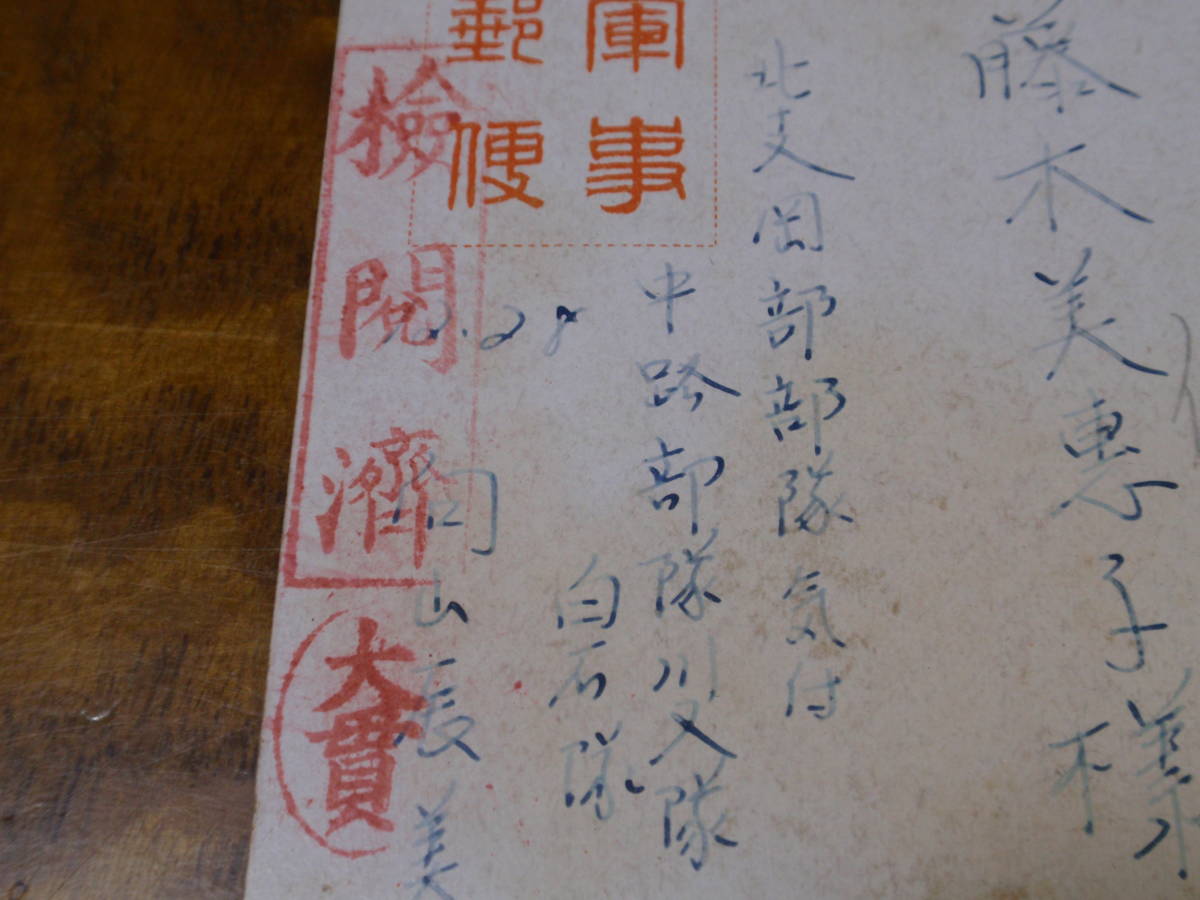 藤木美惠子様
北支岡部部隊気付
中路部隊川又隊
白石隊
向山辰美
軍事
郵便
檢閲濟
大貫